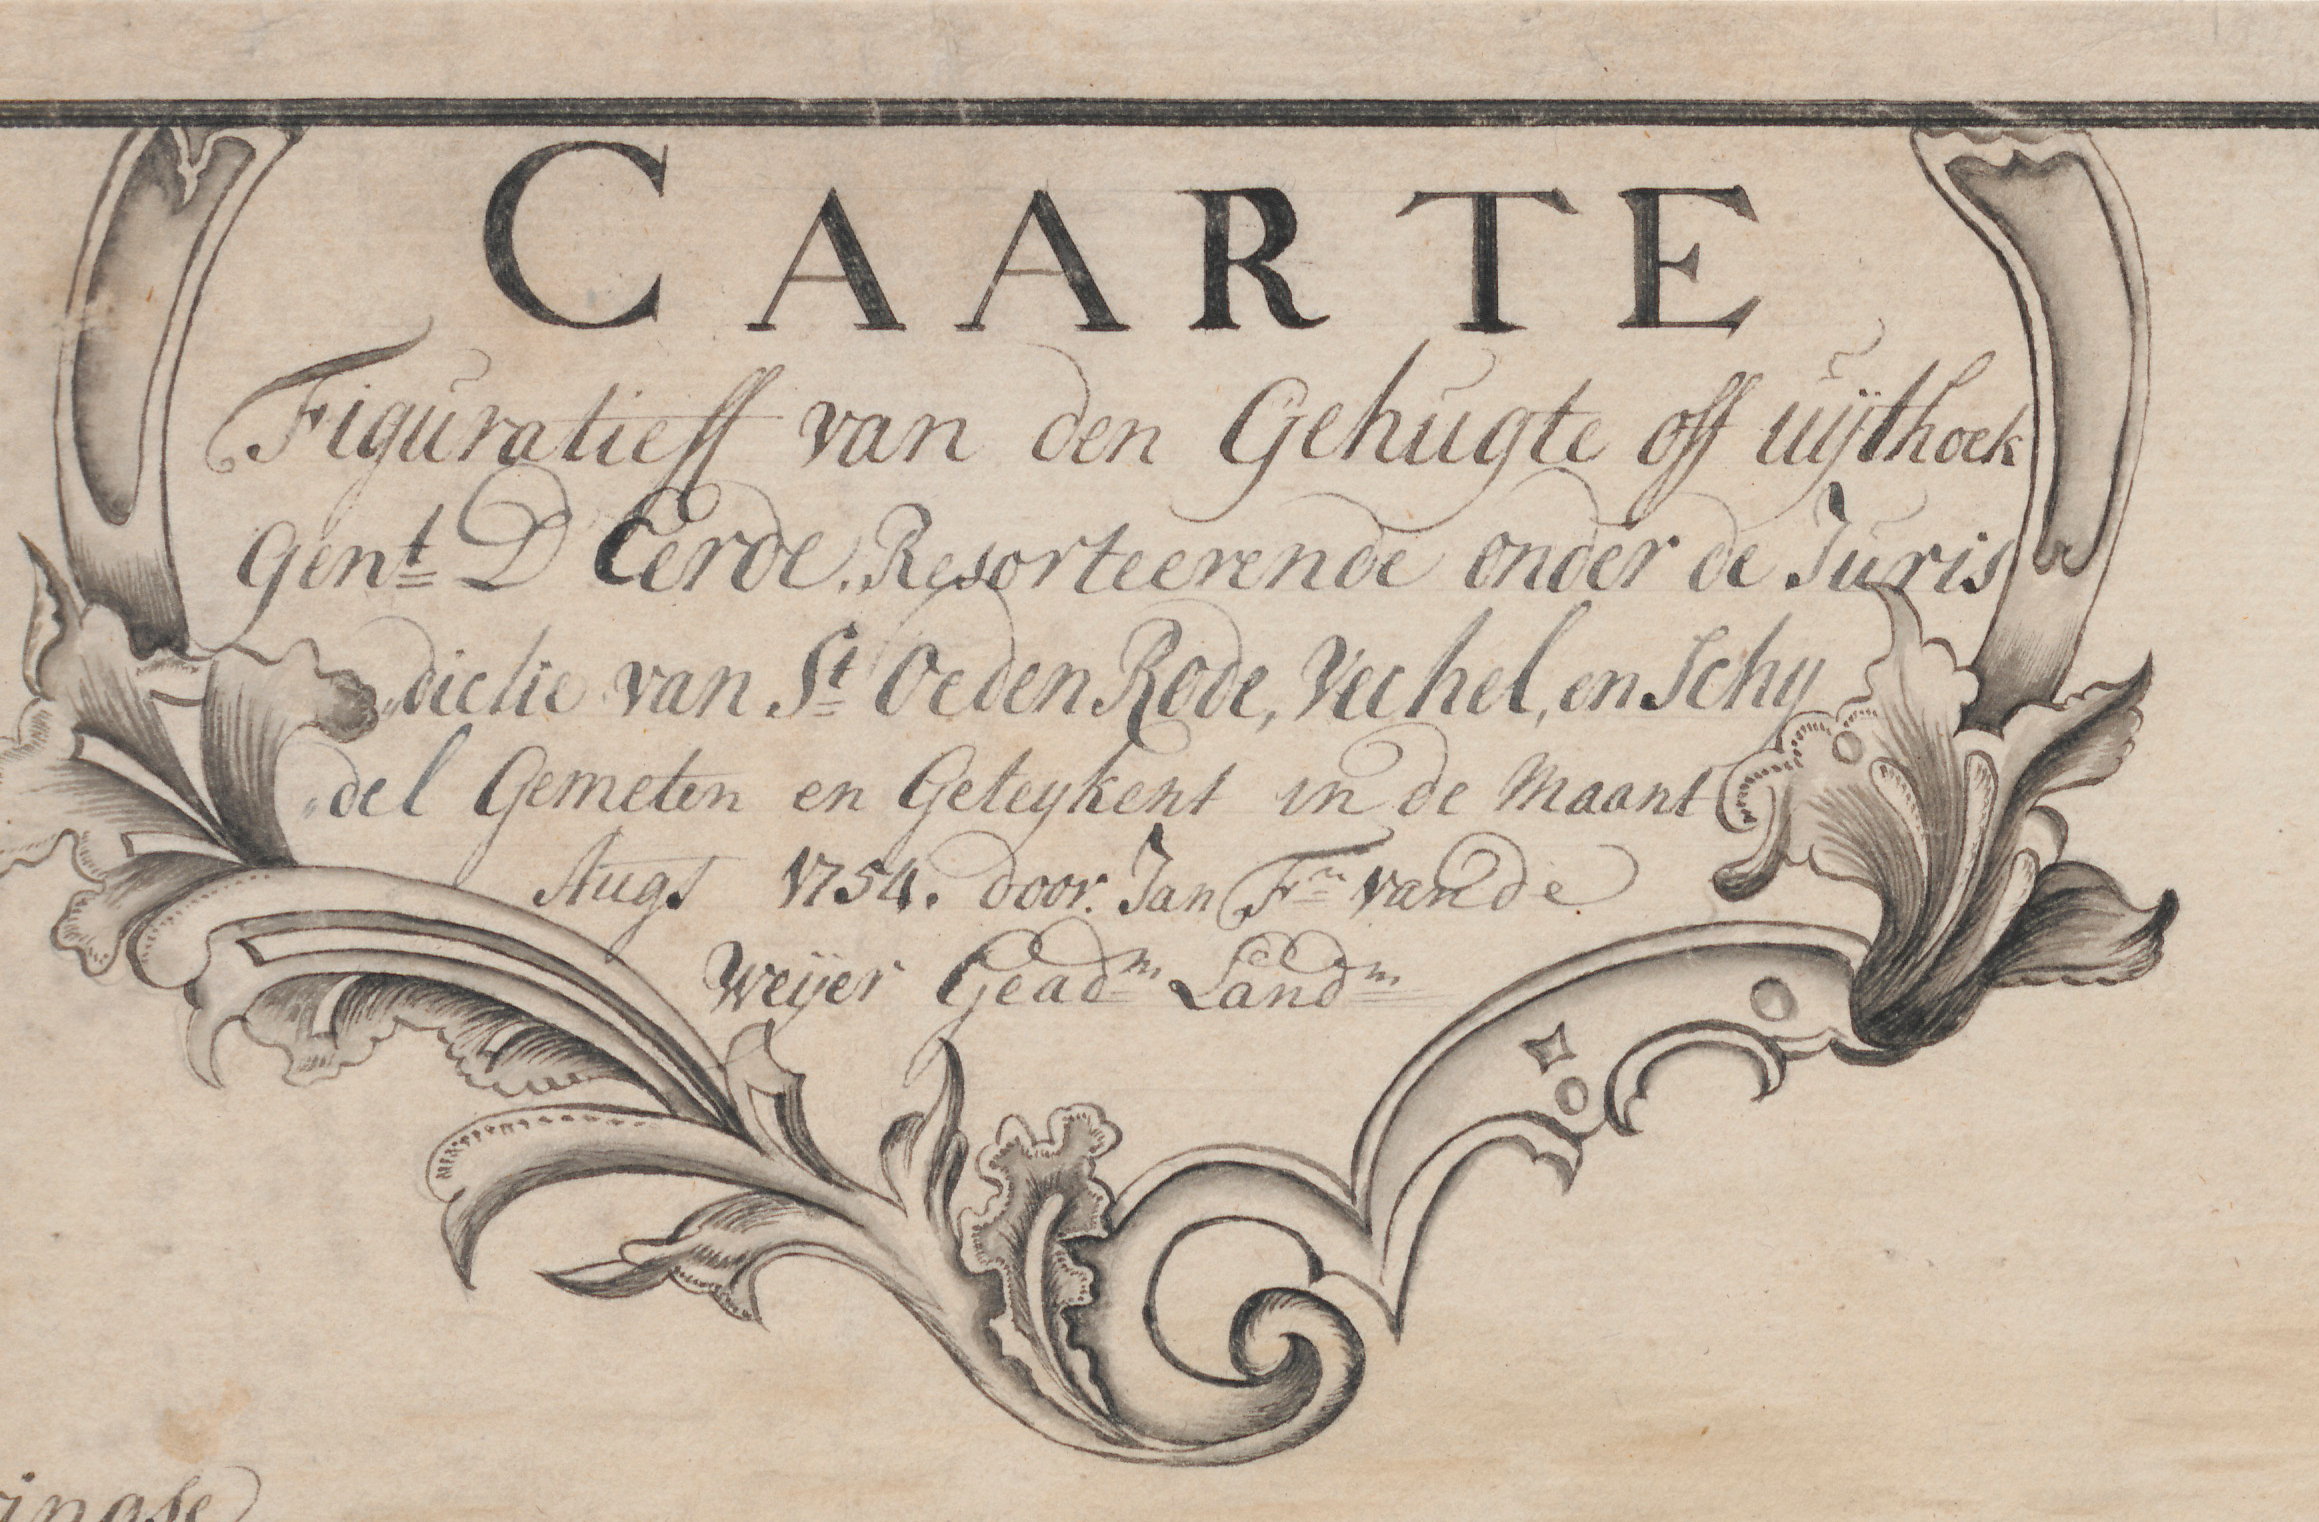 CAARTE
Figuratieff van den Gehugte off uÿthoek
Gent D Eerde. Resorteerende onder de Juris
„dictie van St Oeden Rode, Vechel, en Schy
„del Gemeten en Geteykent in de Maant
Augs 1754. door. Jan Fn van de
Weÿer Geadm Landm